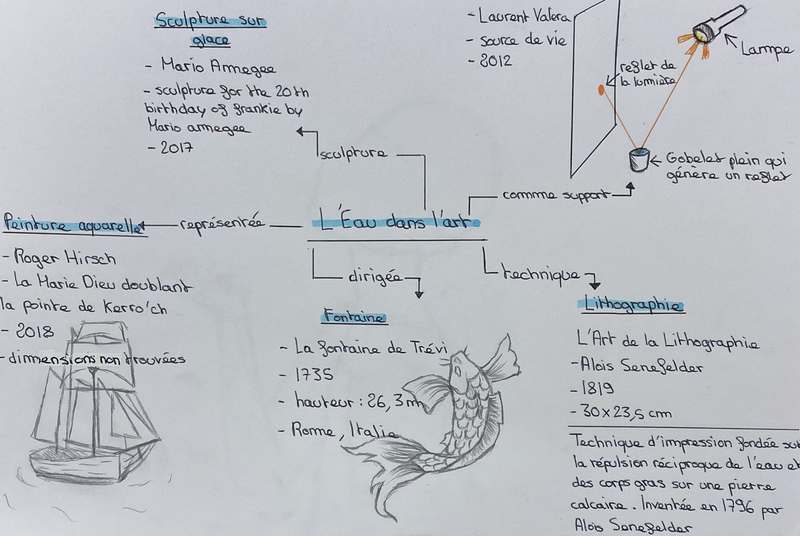 Sculpture sur
glace
- Mario Amegee
- sculpture for the 20th
birthday of frankie by
Mario amegee
- 2017
- Laurent Valera
- source de vie
- 2012
Lampe
reflet de
la lumière
Gobelet plein qui
génère un reflet
sculpture
comme support
Peinture aquarelle
représentée
L'Eau dans l'art
- Roger Hirsch
- La Marie Dieu doublant
la pointe de Kerro'ch
- 2018
- dimmensions non trouvées
dirigée
Fontaine
- La fontaine de Trévi
- 1735
- hauteur : 26,3 m
- Rome, Italie
technique
Lithographie
L'Art de la Lithographie
- Alois Senefelder
- 1819
- 30x23,5 cm
Technique d'impression fondée sur
la répulsion réciproque de l'eau et
des corps gras sur une pierre
calcaire. Inventée en 1796 par
Alois Senefelder